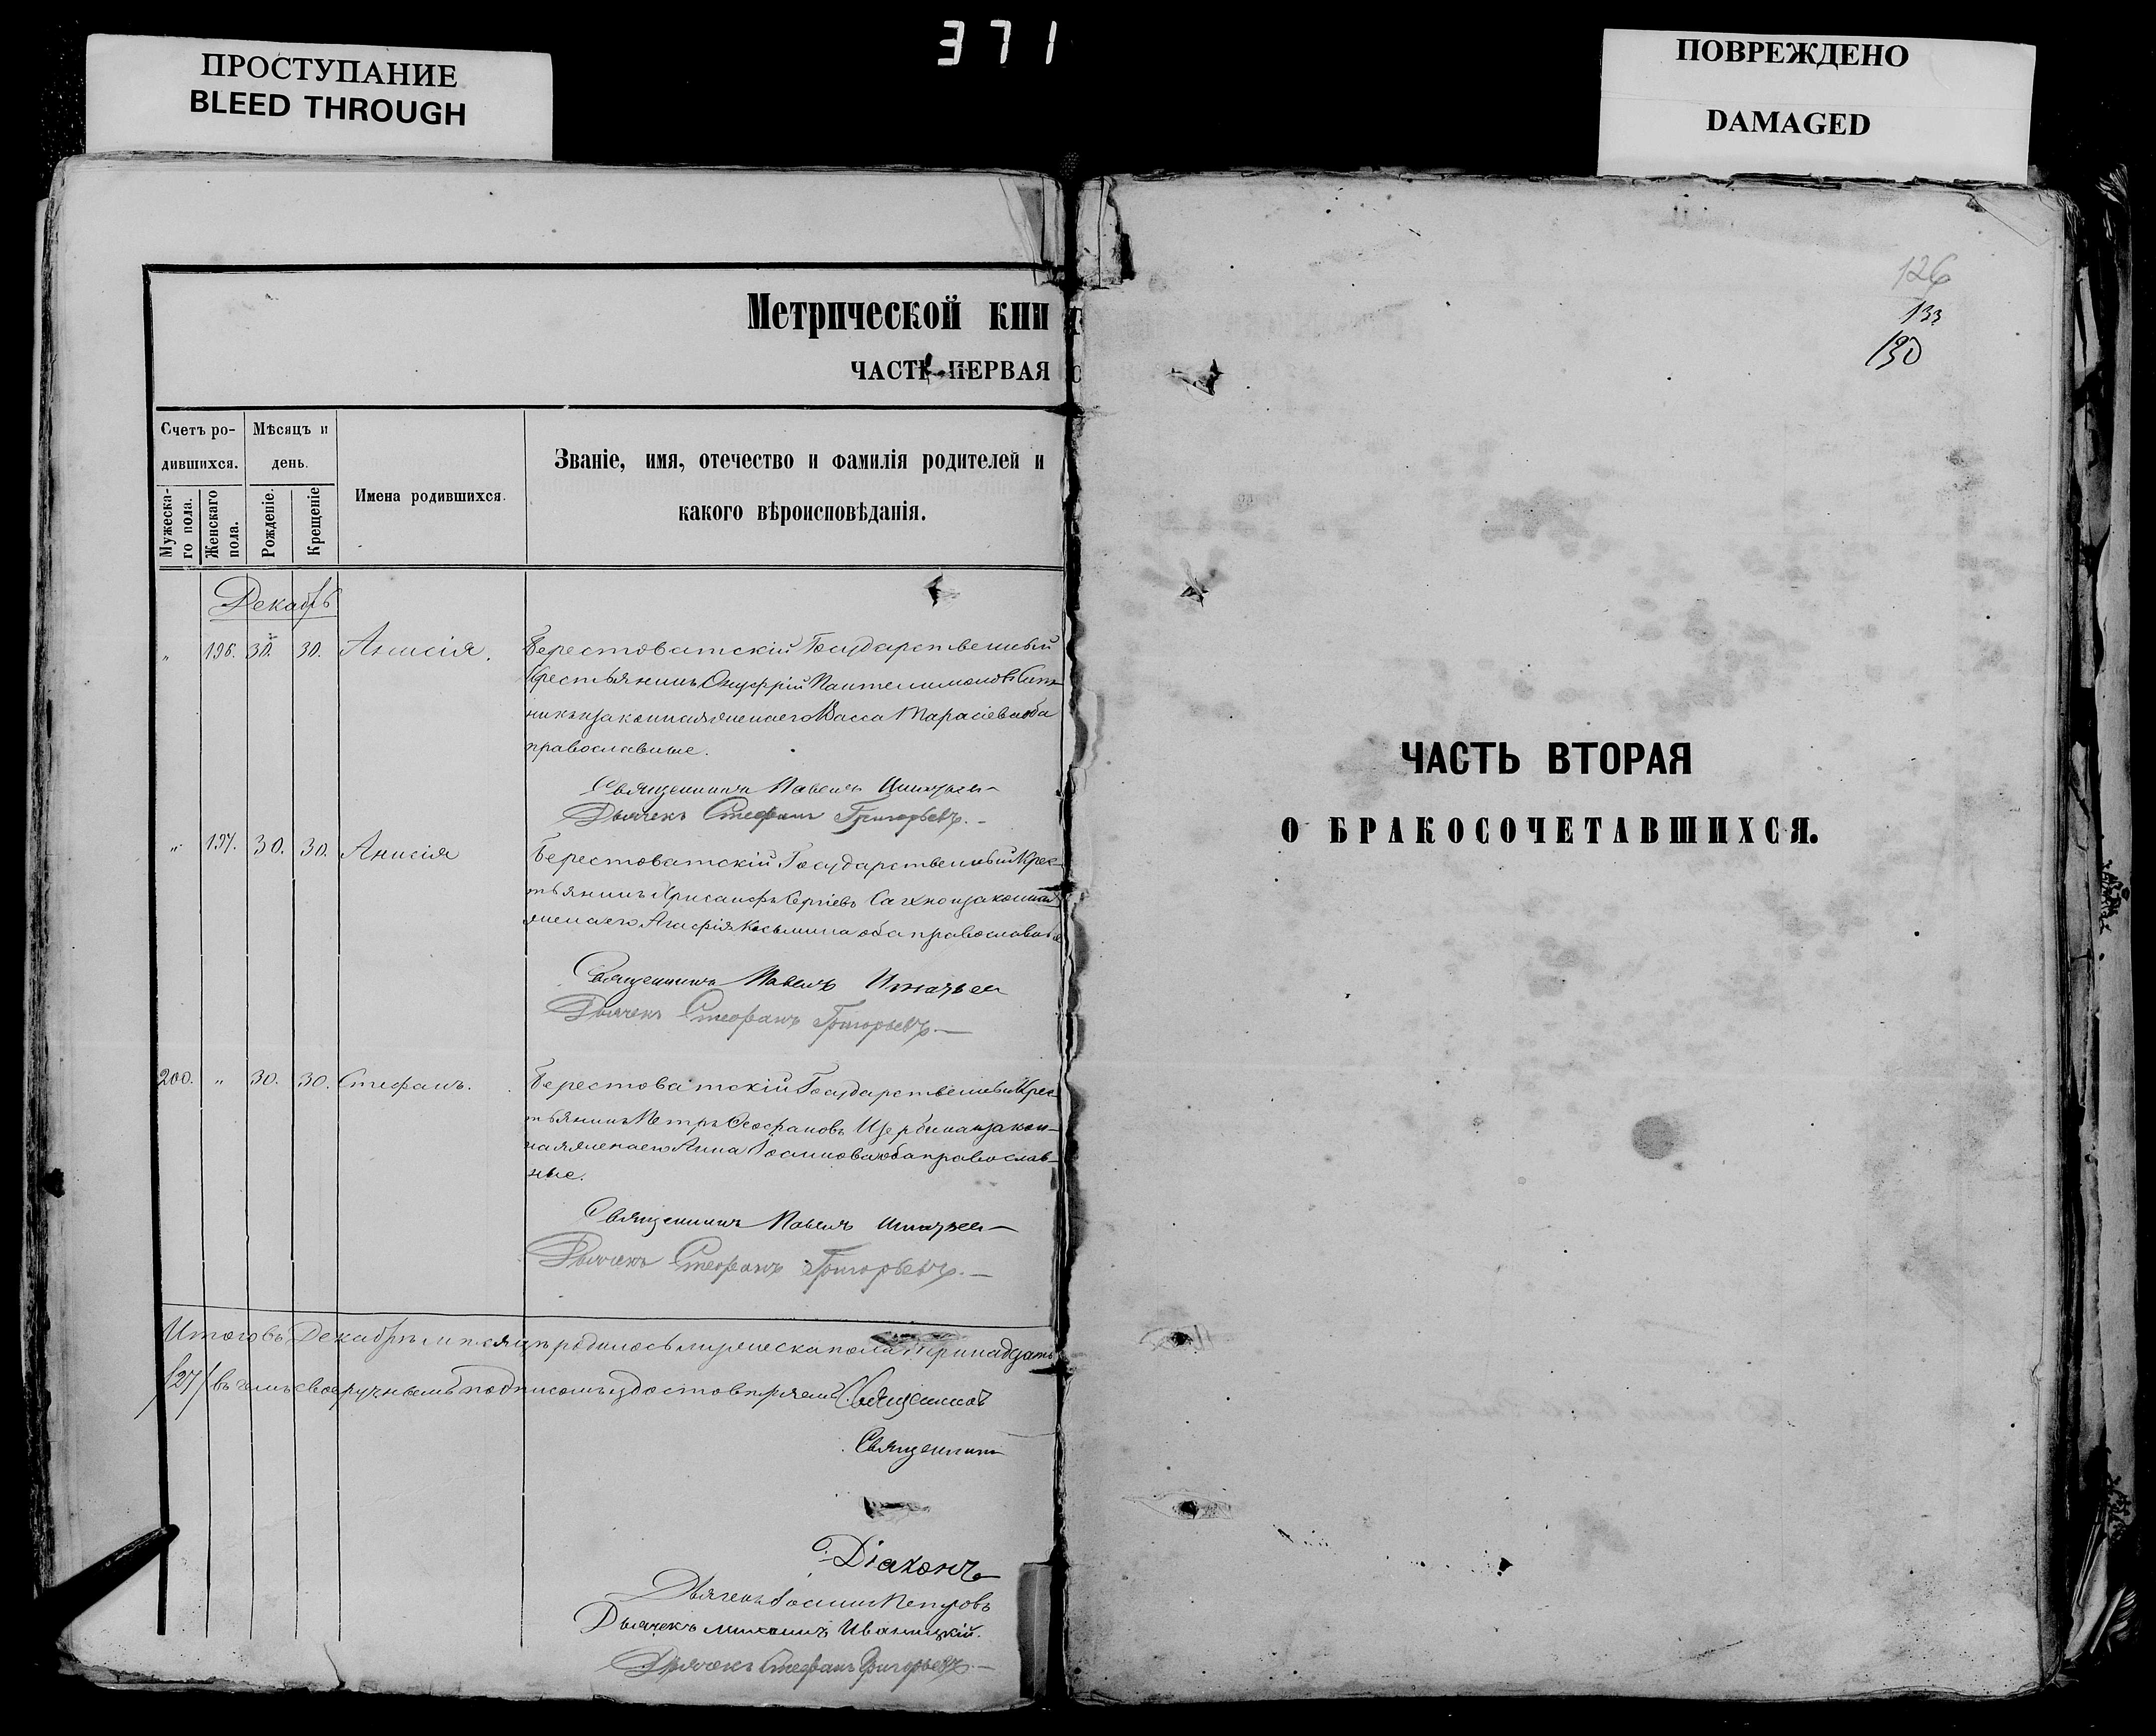 371
ПРОСТУПАНИЕ
BLEED THROUGH
ПОВРЕЖДЕНО
DAMAGED
Метрической кни
ЧАСТЬ ПЕРВАЯ
Счетъ ро-
дившихся.
Мужеска-
го пола.
Женскаго
пола.
Мѣсяцъ и
день.
Рожденіе.
Крещеніе
Имена родившихся.
Званіе, имя, отечество и фамилія родителей и
какого вѣроисповѣданія.
Декабрь
„ 196. 30. 30. Анисія. Берестоватскій Государственный
Крестьянинъ Онуфрій Пантелимоновъ
никъ и законная жена его Васса Тарасіева оба
православные.
Священникъ Павелъ
Дьячекъ Стефанъ Григорьевъ.
„ 197. 30. 30. Анисія Берестоватскій Государственный Крес-
тьянинъ Хрисанфъ Сергіевъ Сахно и законная
жена его Агафія Косьмина оба православные
Священникъ Павелъ
Дьячекъ Стефанъ Григорьевъ.
200. „ 30. 30. Стефанъ. Берестоватскій Государственный Крес-
тьянинъ Петръ Феофановъ Щербина и закон-
ная жена его Анна Іосипова оба православ-
ные.
Священникъ Павелъ
Дьячекъ Стефанъ Григорьевъ.
Итого въ Декабрѣ мѣсяцѣ родилось мужеска пола тринадцать
/27/ въ чемъ своеручнымъ подписомъ удостовѣряемъ Священникъ
Священникъ
Діаконъ
Дьячекъ Іосипъ Петровъ
Дьячекъ Михаилъ Иваницкій.
Дьячекъ Стефанъ Григорьевъ.
126
133
130
ЧАСТЬ ВТОРАЯ
О БРАКОСОЧЕТАВШИХСЯ.